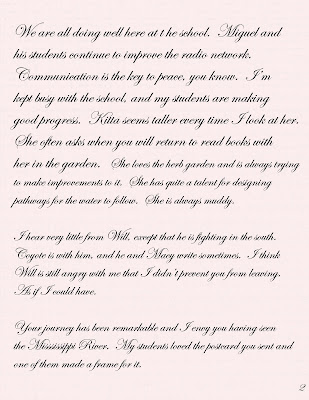 We are all doing well here at t he school.  Miguel and
his students continue to improve the radio network.
Communication is the key to peace, you know.  I'm
kept busy with the school, and my students are making
good progress.  Kitta seems taller every time I look at her.
She often asks when you will return to read books with
her in the garden.  She loves the herb garden and is always trying
to make improvements to it.  She has quite a talent for designing
pathways for the water to follow.  She is always muddy.

I hear very little from Will, except that he is fighting in the south.
Coyote is with him, and he and Macy write sometimes.  I think
Will is still angry with me that I didn't prevent you from leaving.
As if I could have.

Your journey has been remarkable and I envy you having seen
the Mississippi River.  My students loved the postcard you sent and
one of them made a frame for it.
2